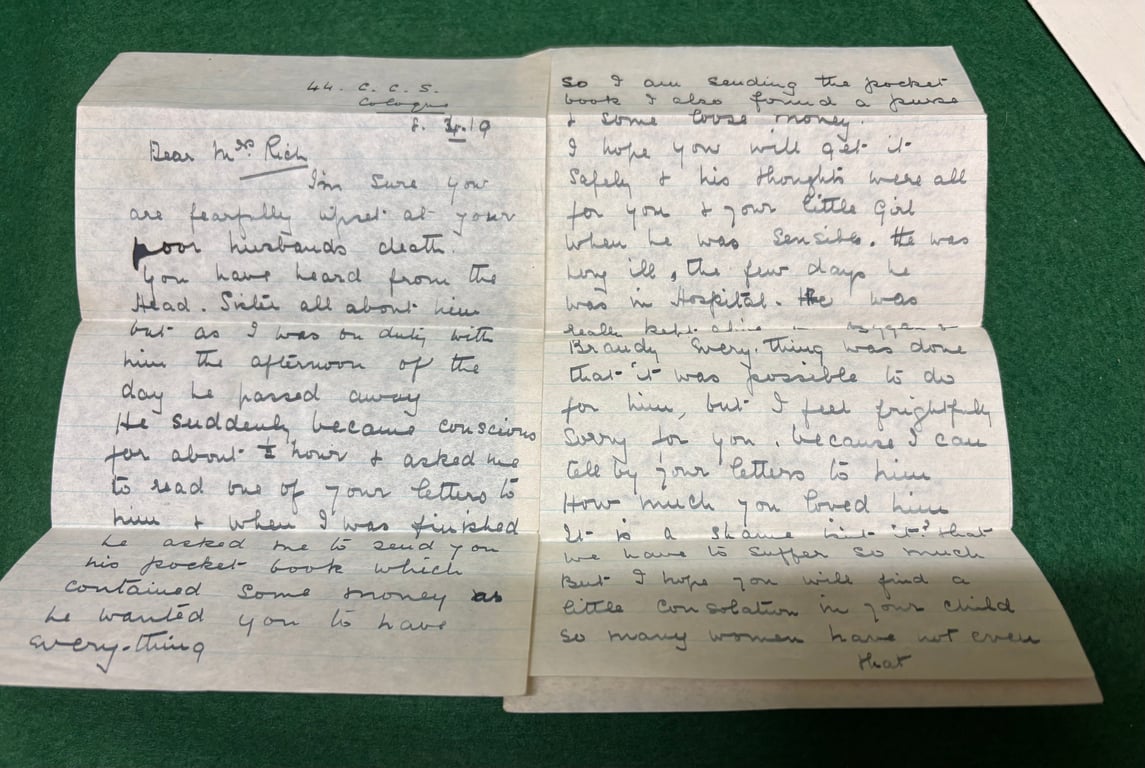 44. C. C. S.
Cologne
8. 3. 19
Dear Mrs Rich
I'm sure you
are fearfully upset at your
poor husbands death.
You have heard from the
Head. Sister all about him
but as I was on duty with
him the afternoon of the
day he passed away
He suddenly became conscious
for about ½ hour & asked me
to read one of your letters to
him & when I was finished
he asked me to send you
his pocket book which
contained some money as
he wanted you to have
every-thing
So I am sending the pocket
book I also found a purse
& some loose money.
I hope you will get it
Safely & his thoughts were all
for you & your little Girl
when he was Sensible. He was
very ill, the few days he
was in Hospital. He was
really kept alive
Brandy Every. thing was done
that it was possible to do
for him, but I feel frightfully
Sorry for you, because I can
tell by your letters to him
How much you loved him
It is a shame isnt it? that
we have to suffer so much
But I hope you will find a
little Consolation in your child
So many women have not even
that